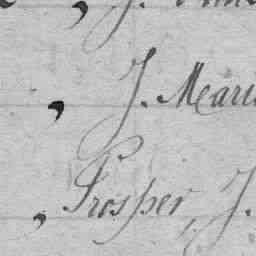 , J.
, J. Mari
, Prosper, J.